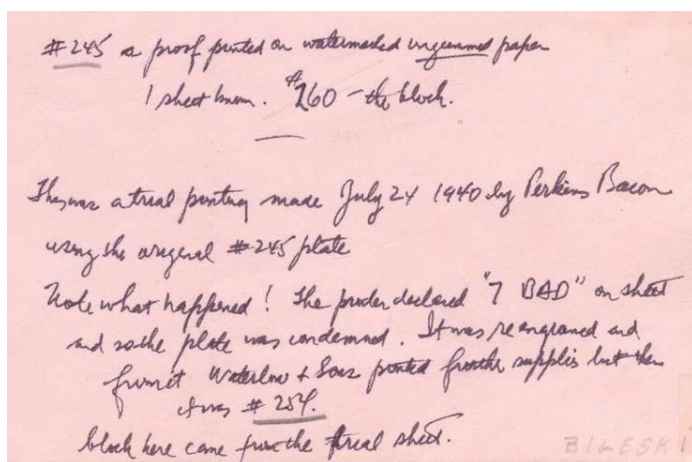 #245 a proof printed on watermarked ungummed paper
1 sheet known. $260 - the block.
This was a trial printing made July 24 1940 by Perkins Bacon
using the original #245 plate
Note what happened! The printer declared "7 BAD" on sheet
and so the plate was condemned. It was reengraved and
from it Waterlow & Sons printed further supplies but then
it was # 254.
block here came from the trial sheet.
BILESKI